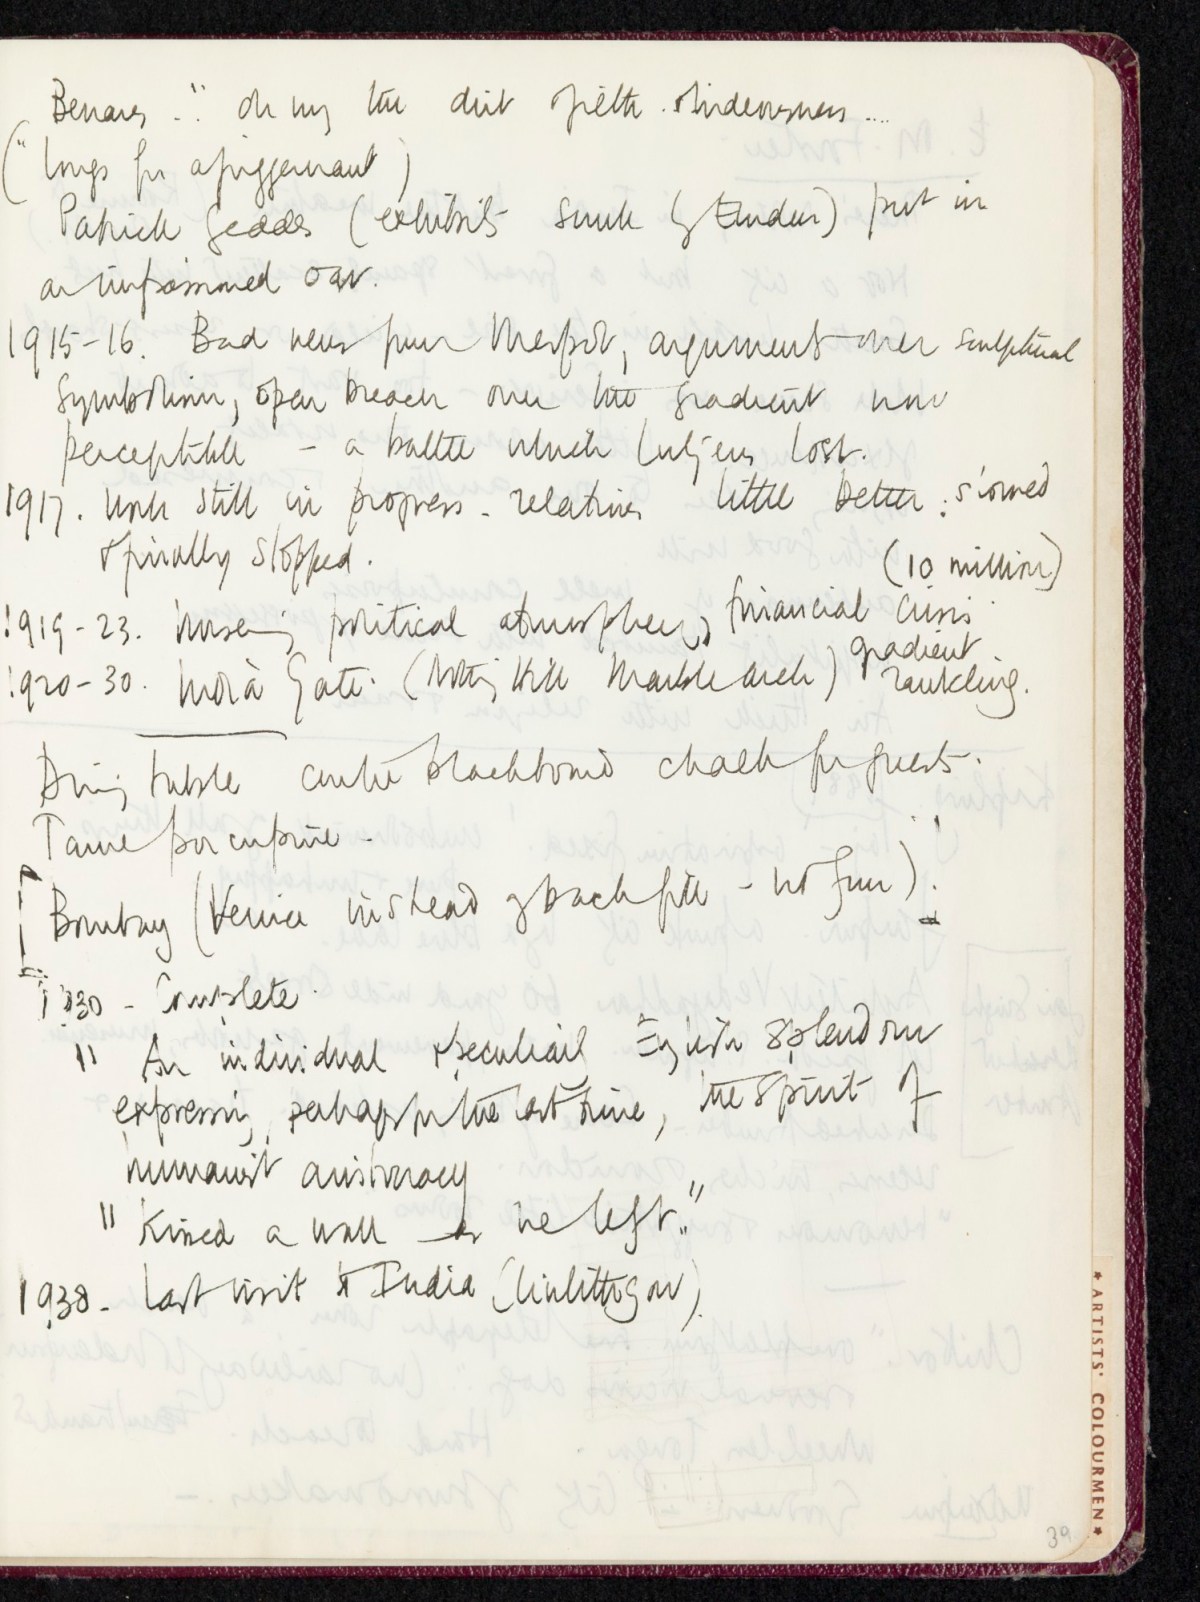 Benares .." oh my the dirt filth & hideousness ....
(" longs for a juggernaut )
Patrick Geddes (exhibits sunk by Emden) put in
an impassioned oar.
1915-16. Bad news from Mespot, argument over sculptural
symbolism, open breach over the gradient now
perceptible - a battle which Lutjens lost.
1917. Work still in progress - relations little better : slowed
& finally stopped. (10 million)
1919-23. political atmosphere, financial crisis
1920-30. India Gate. (Notting Hill Marble Arch) gradient
rankling.
Dining table centre blackboard chalk for guests.
Tame porcupine -
Bombay (Venice instead of Backfill - no fun).
1930 - Complete.
" An individual & peculiar English splendour
expressing, perhaps for the last time, the spirit of
humanist aristocracy
" Kissed a wall as he left."
1938 - Last visit to India (Linlithgow).
*ARTISTS' COLOURMEN*
39